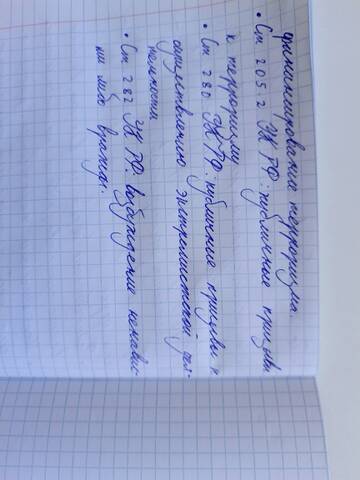 финансирование терроризма.
• Ст 205 2 УК РФ: публичные призывы
к терроризму
• Ст 280 УК РФ: публичные призывы к
осуществлению экстремистской дея-
тельности
• Ст 282 УК РФ: возбуждение ненавис-
ти либо вражды.